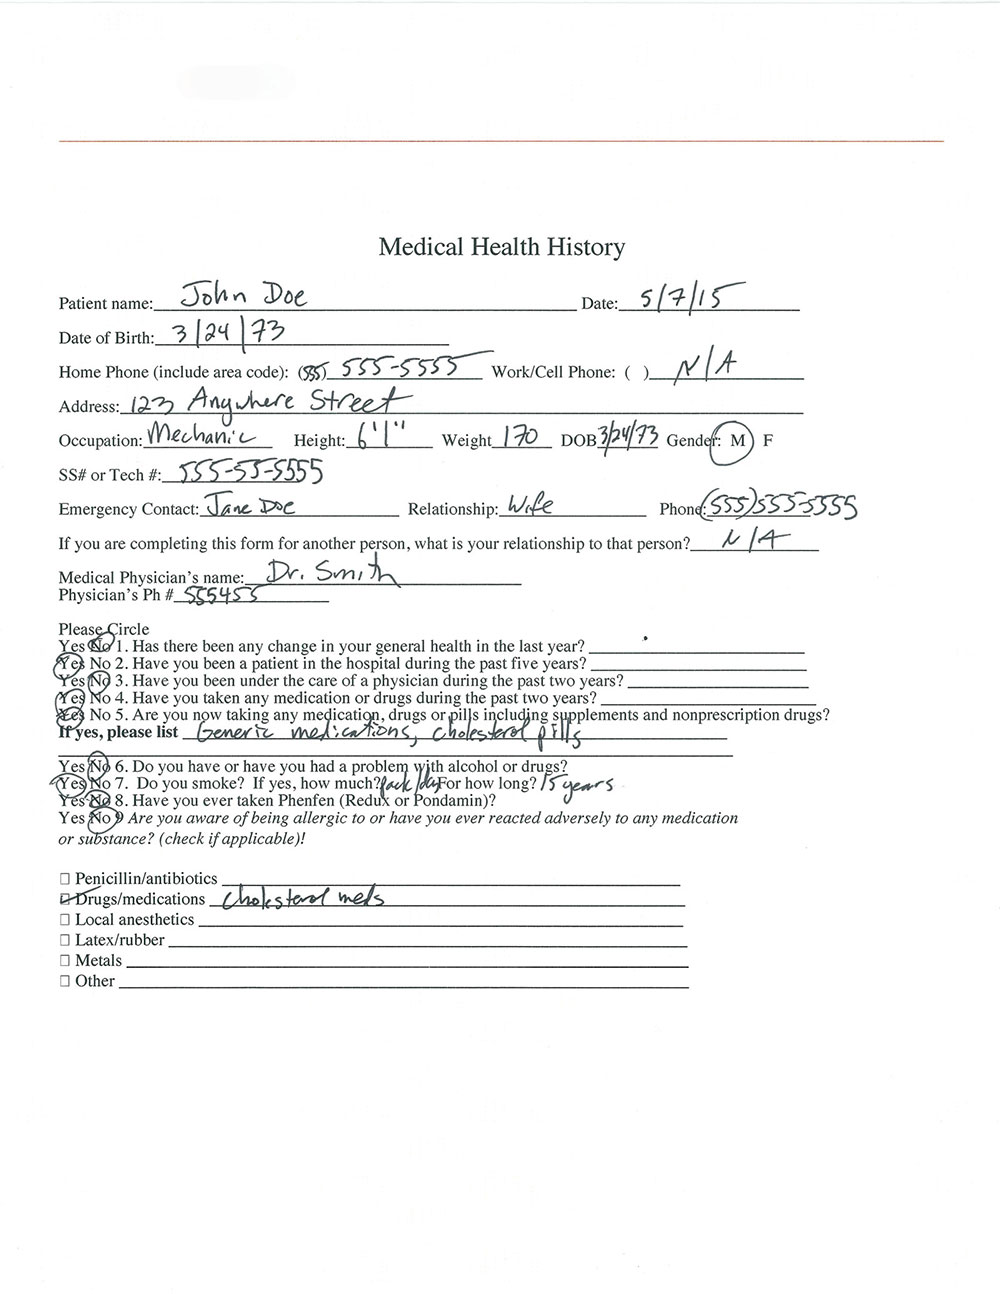 Medical Health History
Patient name: John Doe Date: 5/7/15
Date of Birth: 3/24/73
Home Phone (include area code): (555) 555-5555 Work/Cell Phone: ( ) N/A
Address: 123 Anywhere Street
Occupation: Mechanic Height: 6'1" Weight 170 DOB 3/24/73 Gender: M F
SS# or Tech #: 555-55-5555
Emergency Contact: Jane Doe Relationship: Wife Phone: (555)555-5555
If you are completing this form for another person, what is your relationship to that person? N/A
Medical Physician's name: Dr. Smith
Physician's Ph # 555455
Please Circle
Yes No 1. Has there been any change in your general health in the last year?
Yes No 2. Have you been a patient in the hospital during the past five years?
Yes No 3. Have you been under the care of a physician during the past two years?
Yes No 4. Have you taken any medication or drugs during the past two years?
Yes No 5. Are you now taking any medication, drugs or pills including supplements and nonprescription drugs?
If yes, please list Generic medications, cholesterol pills
Yes No 6. Do you have or have you had a problem with alcohol or drugs?
Yes No 7. Do you smoke? If yes, how much? pack/day For how long? 15 years
Yes No 8. Have you ever taken Phenfen (Redux or Pondamin)?
Yes No 9 Are you aware of being allergic to or have you ever reacted adversely to any medication
or substance? (check if applicable)!
Penicillin/antibiotics
Drugs/medications cholesterol meds
Local anesthetics
Latex/rubber
Metals
Other